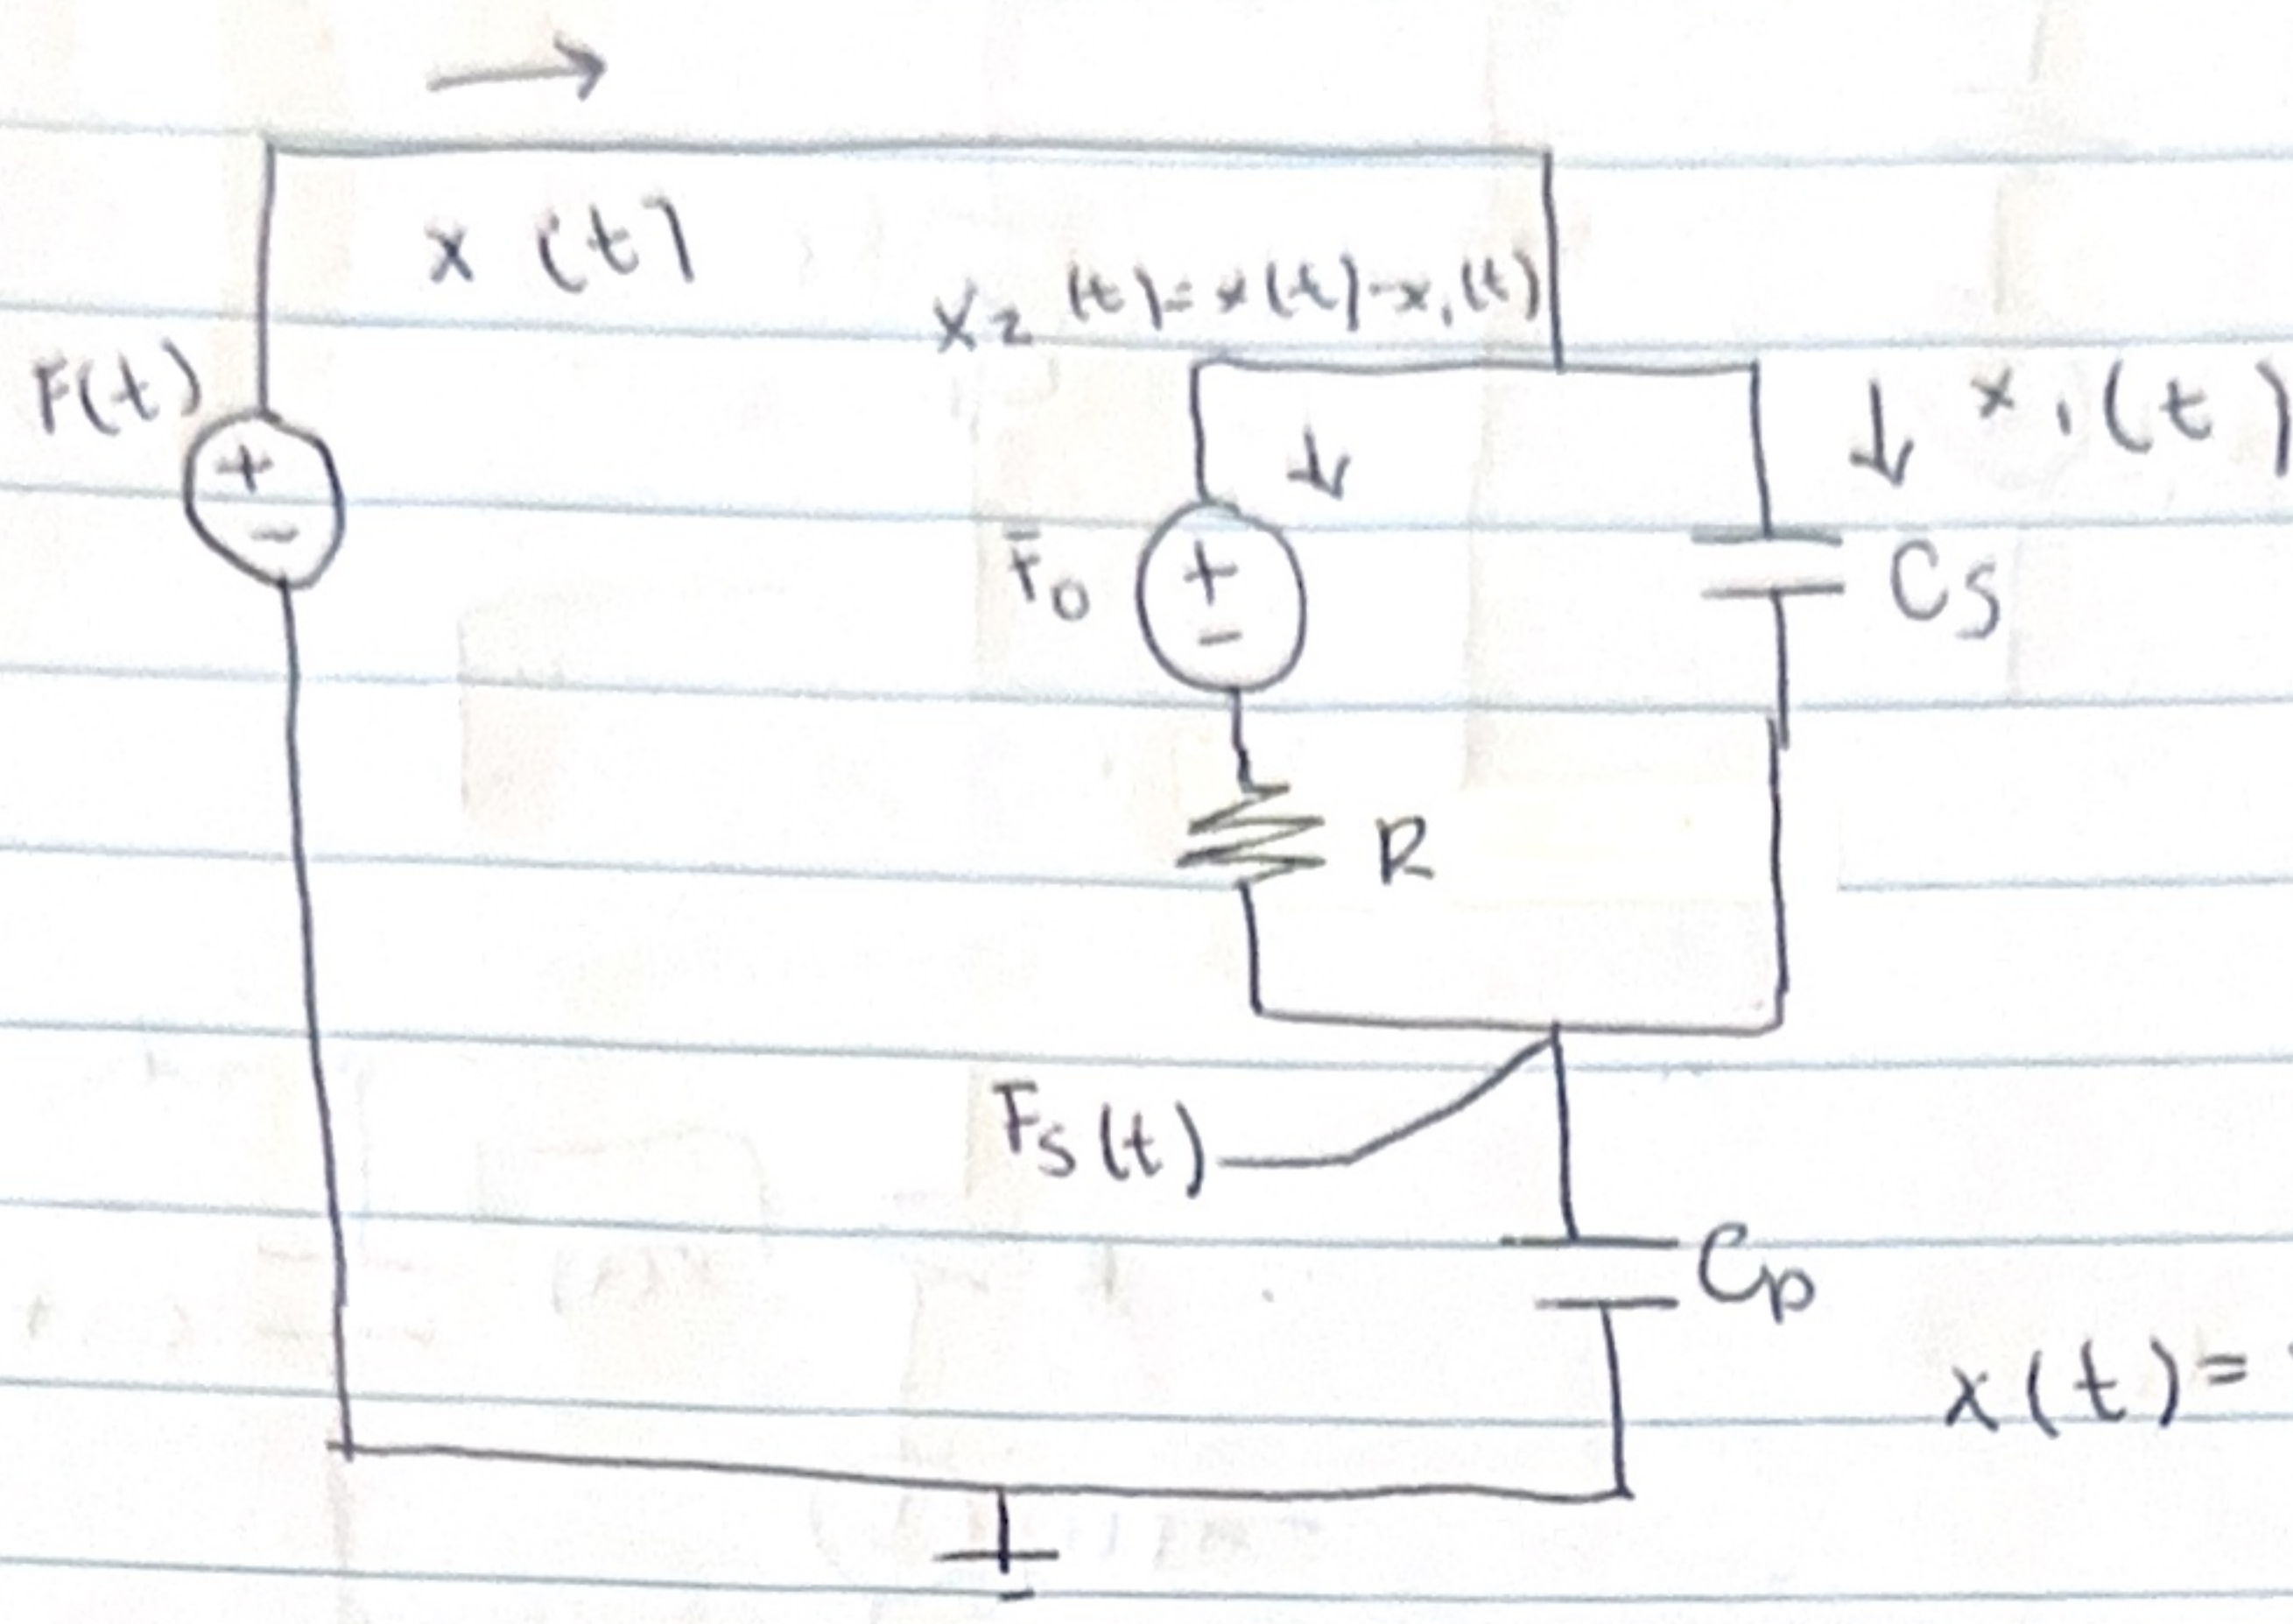 x (t)
x₂ (t)=x(t)-x₁(t)
F(t)
x₁(t)
+
-
F₀
+
-
Cs
R
Fs(t)
Cp
x(t)=